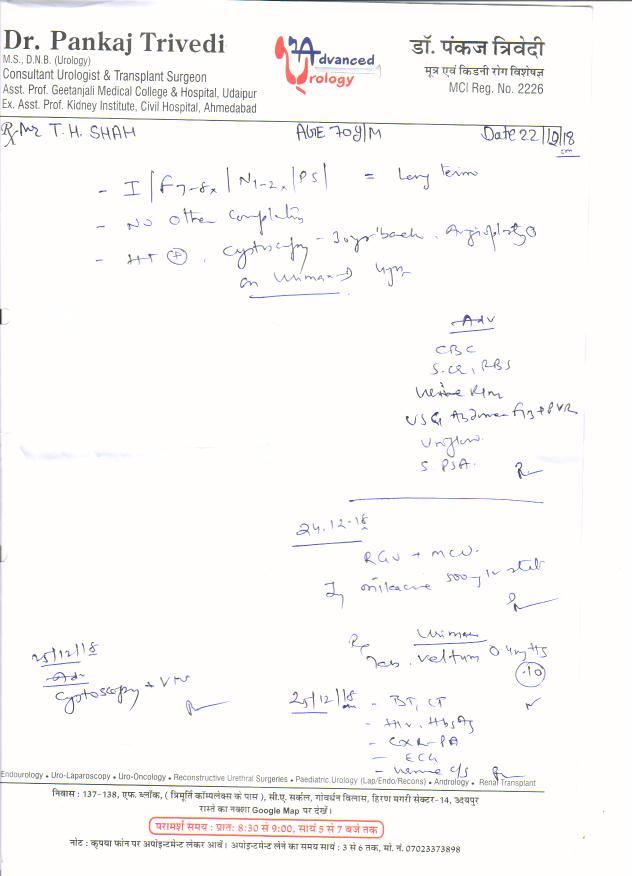 Dr. Pankaj Trivedi
M.S., D.N.B. (Urology)
Consultant Urologist & Transplant Surgeon
Asst. Prof. Geetanjali Medical College & Hospital, Udaipur
Ex. Asst. Prof. Kidney Institute, Civil Hospital, Ahmedabad
Advanced
Urology
डॉ. पंकज त्रिवेदी
मूत्र एवं किडनी रोग विशेषज्ञ
MCI Reg. No. 2226
Rx Mr T. H. SHAH AGE 70y/M Date 22/12/18
- I | F7-8x | N1-2x | PS | = Long term
- NO Other
- HT + , Cystoscopy - back . Angioplasty
on Urimax-D
Adv
CBC
S.CR, RBS
Urine
USG Abdomen + PVR
S PSA.
24.12.18
RGU + MCU.
500 mg IV stat
Urimax
Rx Tab. 0.4mg HS
10
25/12/18
Adv
Cystoscopy +
25/12/18 - BT, CT
- HIV, HbsAg
- CXR-PA
- ECG
- Urine c/s
Endourology • Uro-Laparoscopy • Uro-Oncology • Reconstructive Urethral Surgeries • Paediatric Urology (Lap/Endo/Recons) • Andrology • Renal Transplant
निवास : 137-138, एफ. ब्लॉक, ( त्रिमूर्ति कॉम्पलेक्स के पास ), सी.ए. सर्कल, गोवर्धन विलास, हिरण मगरी सेक्टर-14, उदयपुर
रास्ते का नक्शा Google Map पर देखें।
परामर्श समय : प्रातः 8:30 से 9:00, सायं 5 से 7 बजे तक
नोट : कृपया फोन पर अपोइन्टमेन्ट लेकर आवें। अपोइन्टमेन्ट लेने का समय सायं : 3 से 6 तक, मो. नं. 07023373898